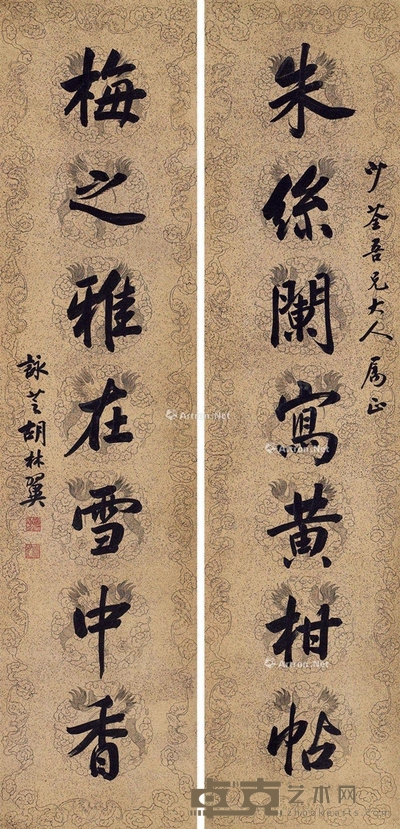 少荃吾兄大人属正
朱絲闌寫黄柑帖
梅之雅在雪中香
詠芝胡林翼
Artron.Net
Artron.Net
Artron.Net
艺术网